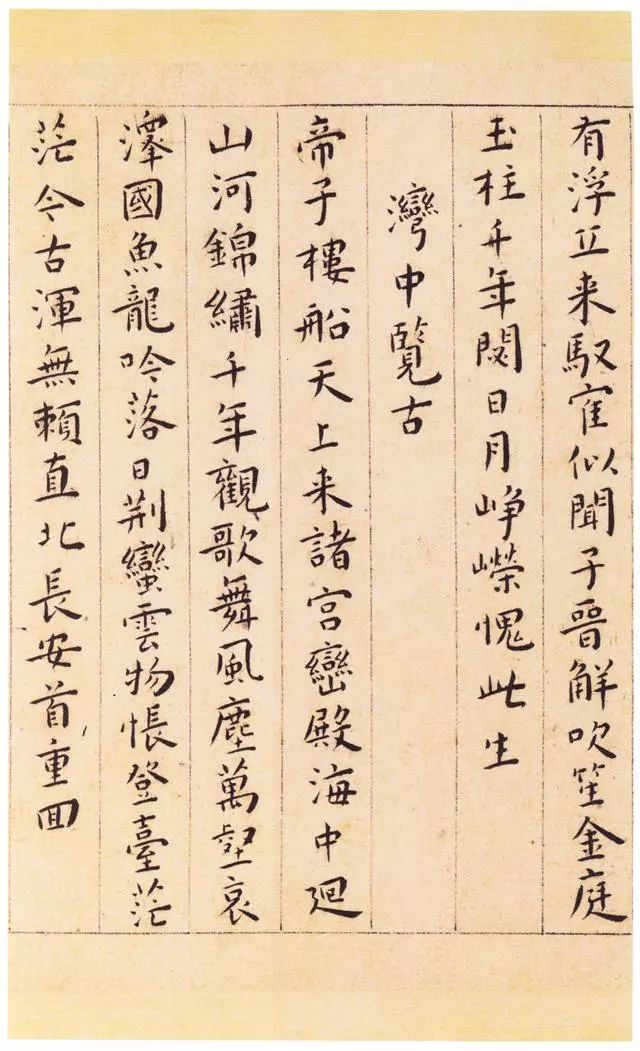 有浮丘来馭寉似聞子晉解吹笙金庭
玉柱千年閟日月崢嶸愧此生
灣中覽古
帝子樓船天上来諸宮巒殿海中廻
山河錦繡千年觀歌舞風塵萬壑哀
澤國魚龍吟落日荆蠻雲物悵登臺茫
茫今古渾無頼直北長安首重回